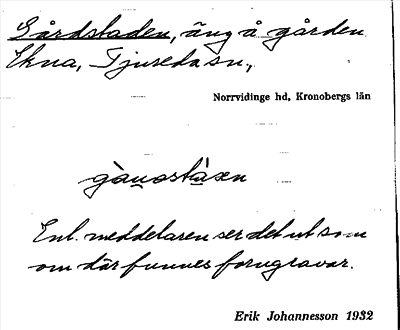 Gårdstaden, äng å gården
Ekna, Tjureda sn,
Norrvidinge hd, Kronobergs län
Enl. meddelaren ser det ut som
om där funnes forngravar.
Erik Johannesson 1932